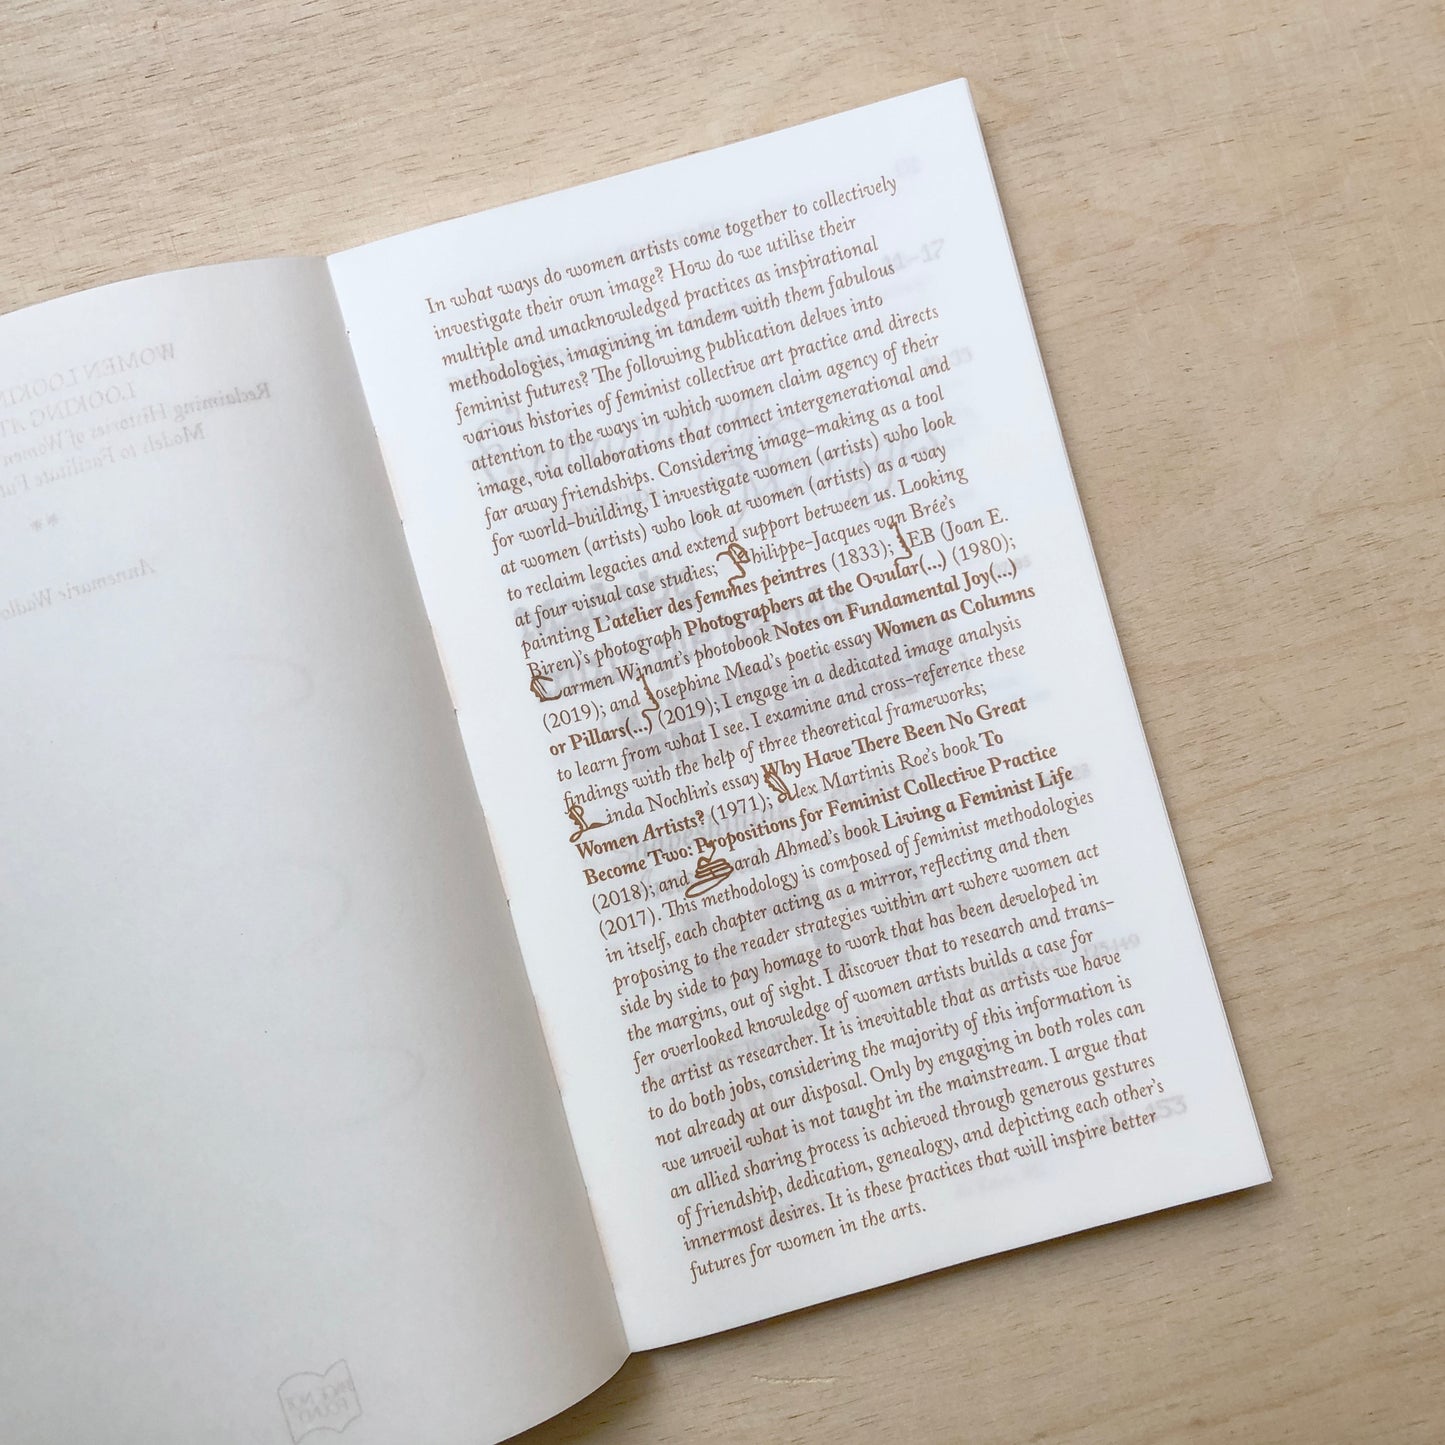 In what ways do women artists come together to collectively
investigate their own image? How do we utilise their
multiple and unacknowledged practices as inspirational
methodologies, imagining in tandem with them fabulous
feminist futures? The following publication delves into
various histories of feminist collective art practice and directs
attention to the ways in which women claim agency of their
image, via collaborations that connect intergenerational and
far away friendships. Considering image-making as a tool
for world-building, I investigate women (artists) who look
at women (artists) who look at women (artists) as a way
to reclaim legacies and extend support between us. Looking
at four visual case studies; Philippe-Jacques van Brée's
painting L'atelier des femmes peintres (1833); JEB (Joan E.
Biren)'s photograph Photographers at the Ovular(...) (1980);
Carmen Winant's photobook Notes on Fundamental Joy(...)
(2019); and Josephine Mead's poetic essay Women as Columns
or Pillars(...) (2019); I engage in a dedicated image analysis
to learn from what I see. I examine and cross-reference these
findings with the help of three theoretical frameworks;
Linda Nochlin's essay Why Have There Been No Great
Women Artists? (1971); Alex Martinis Roe's book To
Become Two: Propositions for Feminist Collective Practice
(2018); and Sarah Ahmed's book Living a Feminist Life
(2017). This methodology is composed of feminist methodologies
in itself, each chapter acting as a mirror, reflecting and then
proposing to the reader strategies within art where women act
side by side to pay homage to work that has been developed in
the margins, out of sight. I discover that to research and trans-
fer overlooked knowledge of women artists builds a case for
the artist as researcher. It is inevitable that as artists we have
to do both jobs, considering the majority of this information is
not already at our disposal. Only by engaging in both roles can
we unveil what is not taught in the mainstream. I argue that
an allied sharing process is achieved through generous gestures
of friendship, dedication, genealogy, and depicting each other's
innermost desires. It is these practices that will inspire better
futures for women in the arts.